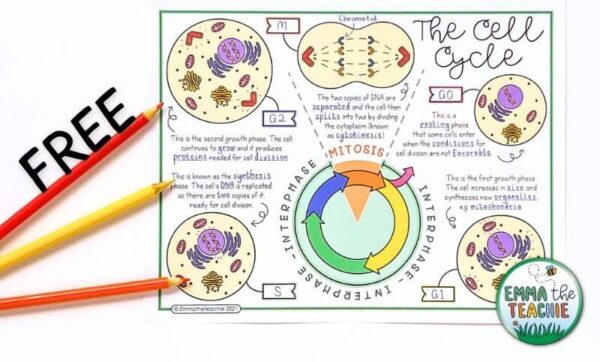 FREE
The Cell
Cycle
M
Chromatid
The two copies of DNA are
separated and the cell then
splits into two by dividing
the cytoplasm (known
as cytokinesis)
G2
This is the second growth phase. The cell
continues to grow and it produces
proteins needed for cell division.
This is known as the synthesis
phase. The cell's DNA is replicated
so there are two copies of it,
ready for cell division.
S
G0
This is a
resting phase
that some cells enter
when the conditions for
cell division are not favorable
This is the first growth phase.
The cell increases in size and
synthesizes new organelles,
e.g. mitochondria
G1
MITOSIS
INTERPHASE - INTERPHASE - INTERPHASE
© Emmatheteachie 2021
EMMA the
TEACHIE